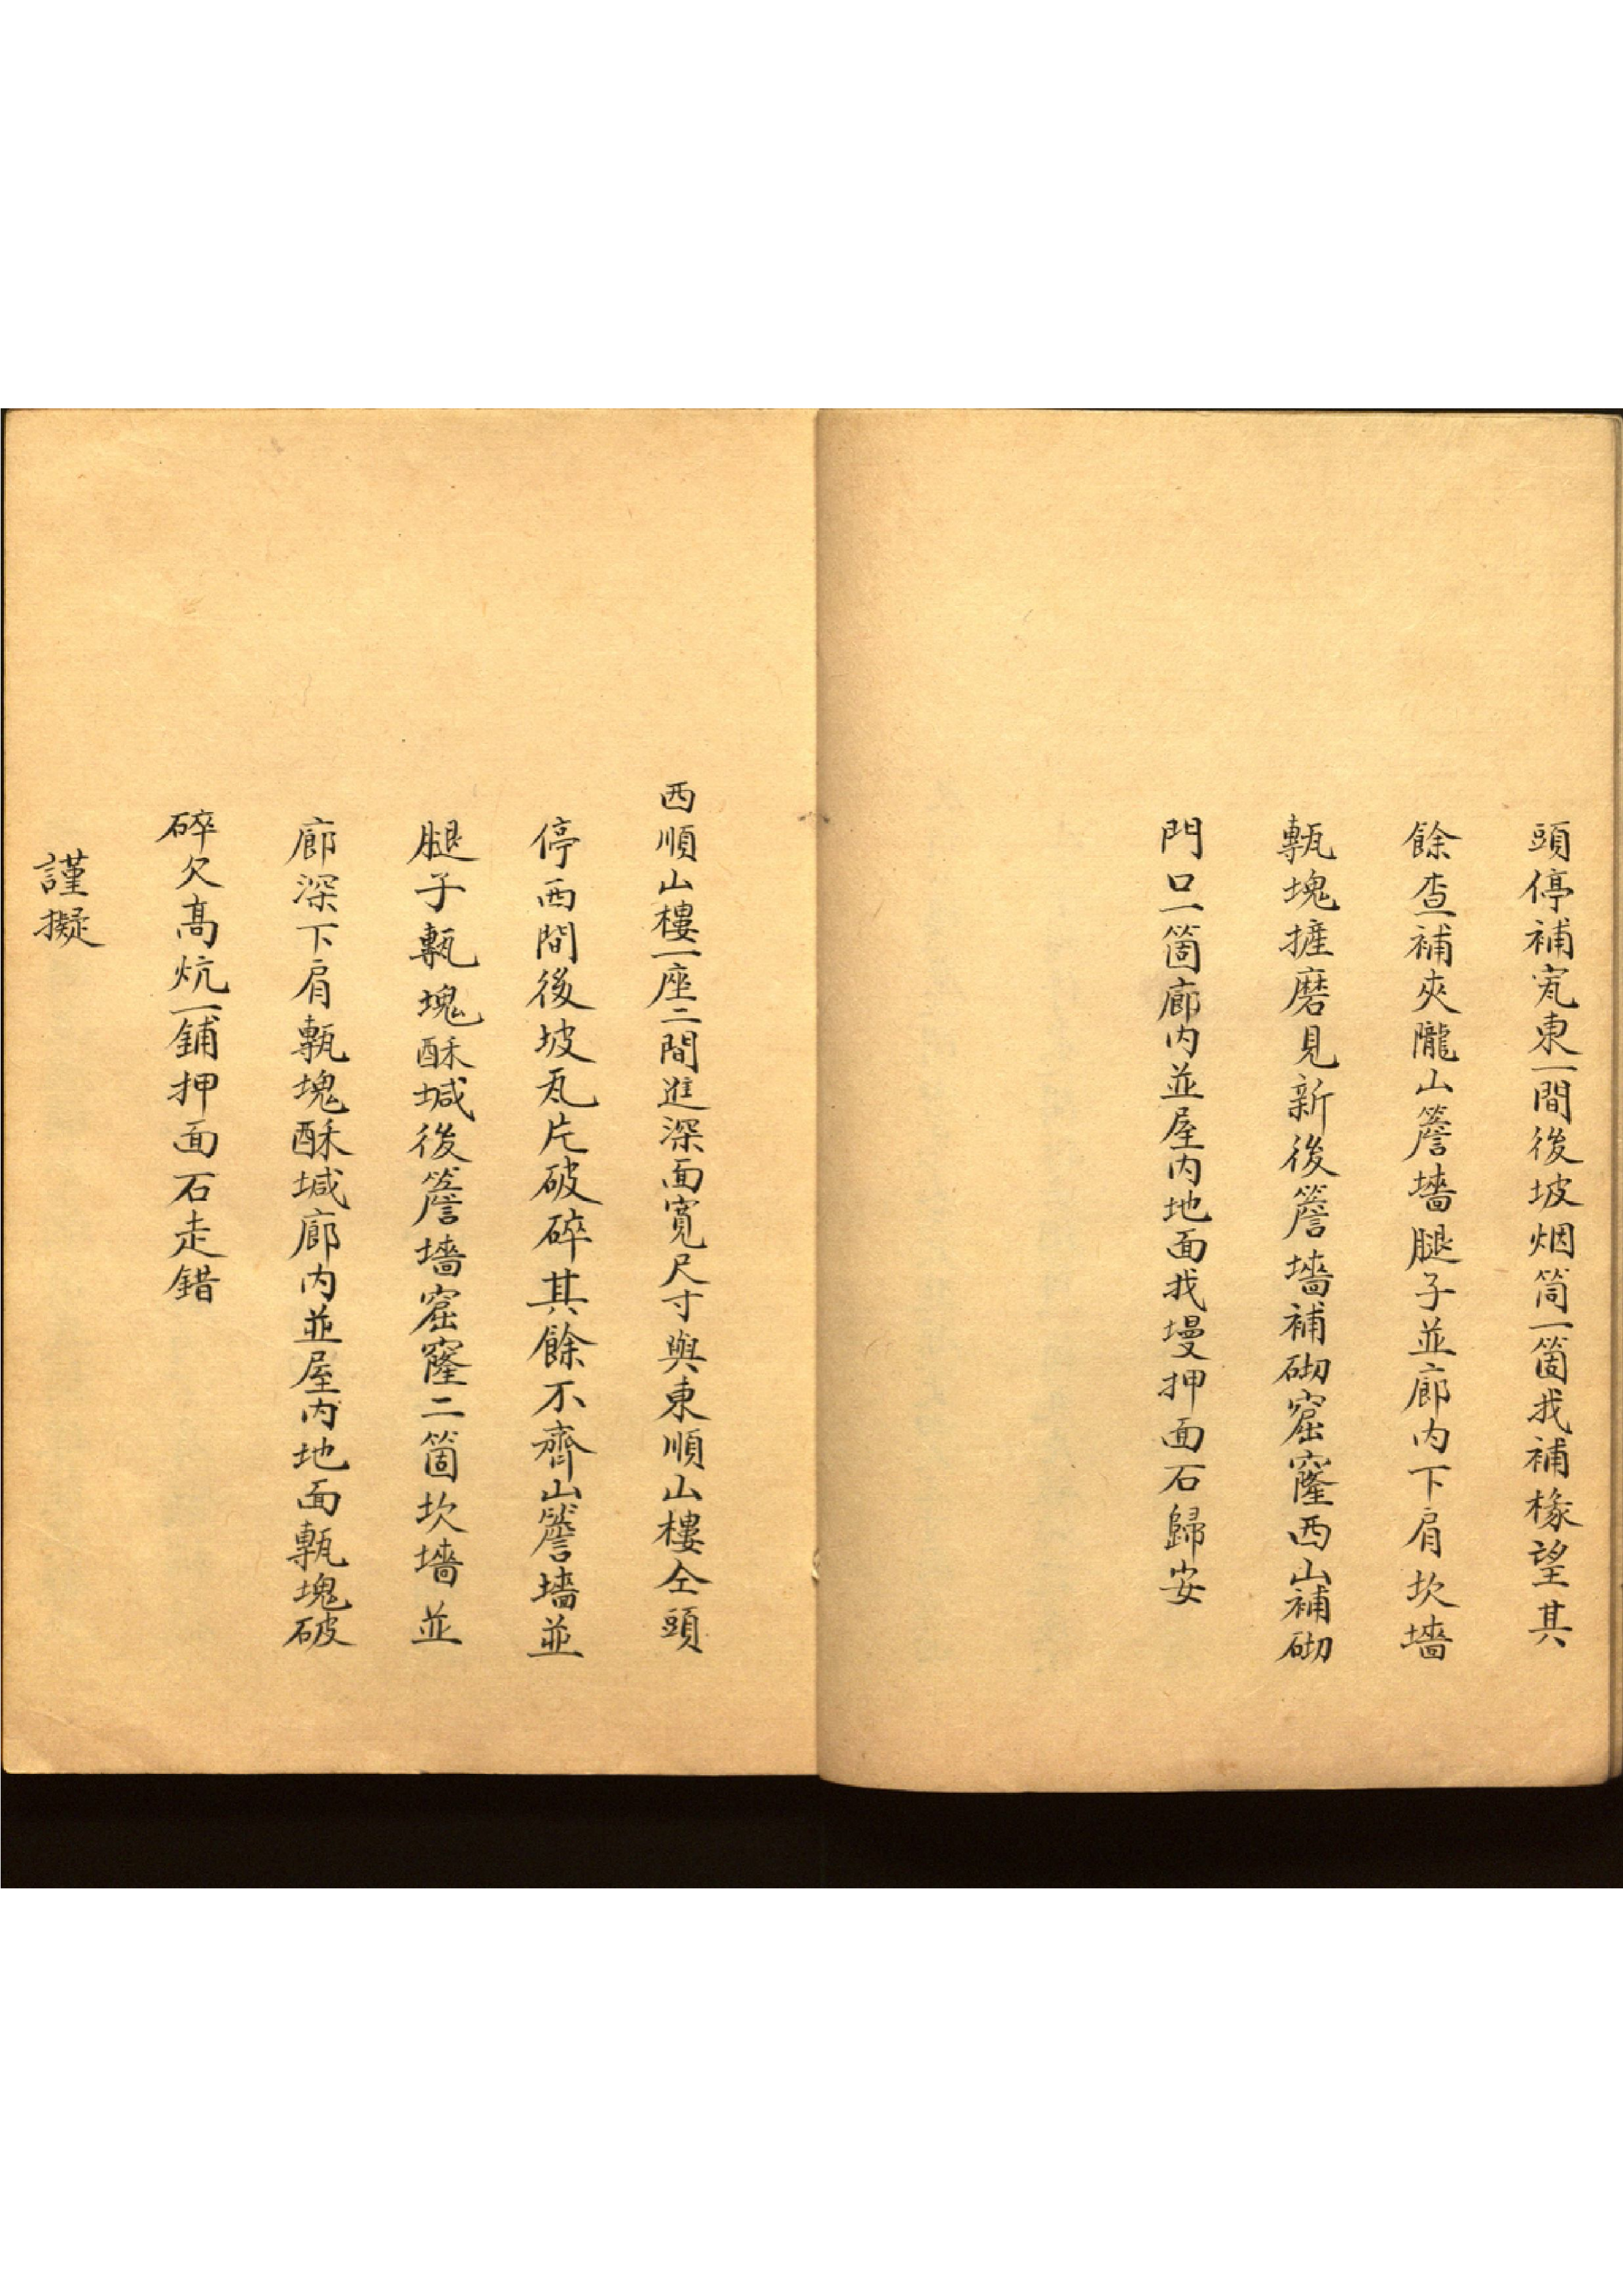 頭停補㝁東一間後坡烟筒一箇找補椽望其
餘查補夾隴山簷墻腿子並廊内下肩坎墻
甎塊摧磨見新後簷墻補砌窟窿西山補砌
門口一箇廊内並屋内地面找墁押面石歸安
西順山樓一座二間進深面寬尺寸與東順山樓仝頭
停西間後坡瓦片破碎其餘不齊山簷墻並
腿子甎塊酥堿後簷墻窟窿二箇坎墻並
廊深下肩甎塊酥堿廊内並屋内地面甎塊破
碎欠高炕一鋪押面石走錯
謹擬